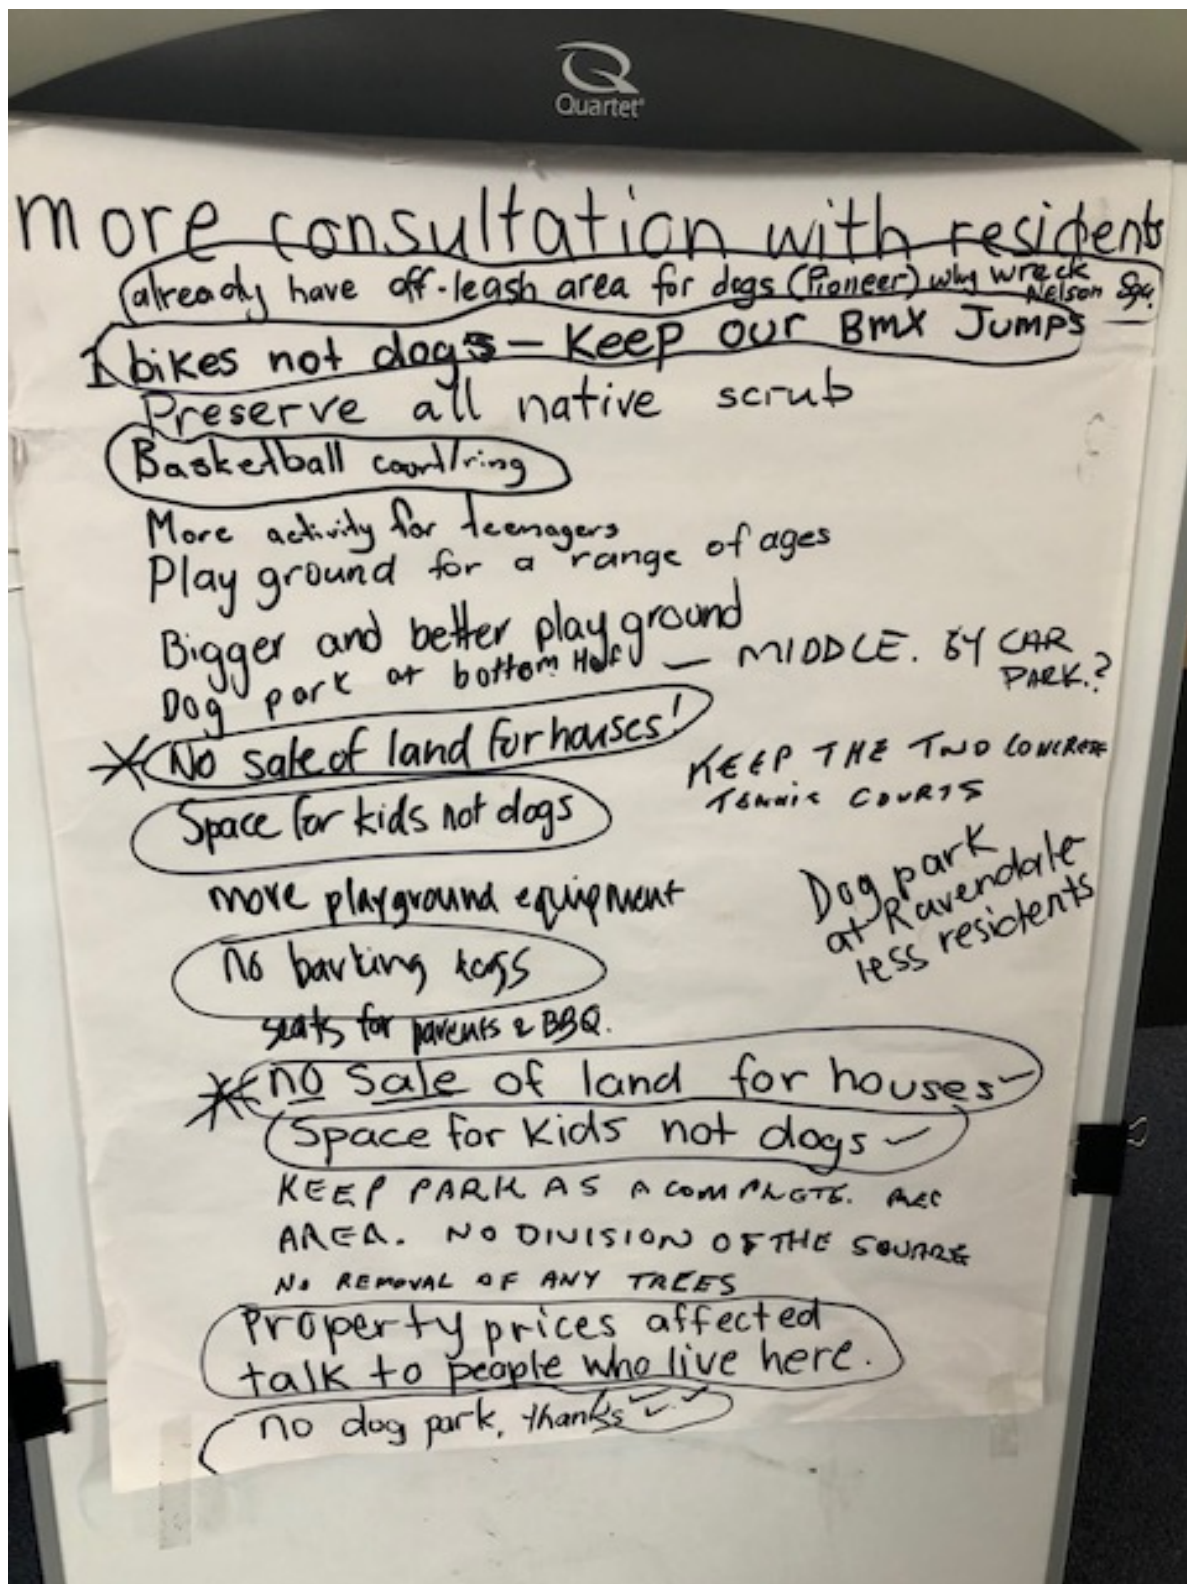 Quartet
more consultation with residents
already have off-leash area for dogs (Pioneer) why wreck
Nelson Sqr?
1 bikes not dogs - Keep our BMX Jumps
Preserve all native scrub
Basketball court/ring
More activity for teenagers
Play ground for a range of ages
Bigger and better play ground
Dog park at bottom Half — MIDDLE. BY CAR
PARK.?
No sale of land for houses!
KEEP THE TWO CONCRETE
TENNIS COURTS
Space for kids not dogs
more playground equipment
Dog park
at Ravendale
less residents
no barking dogs
seats for parents & BBQ.
no sale of land for houses
Space for kids not dogs
KEEP PARK AS A COMPLETE. REC
AREA. NO DIVISION OF THE SQUARE
NO REMOVAL OF ANY TREES
Property prices affected
talk to people who live here.
no dog park, thanks